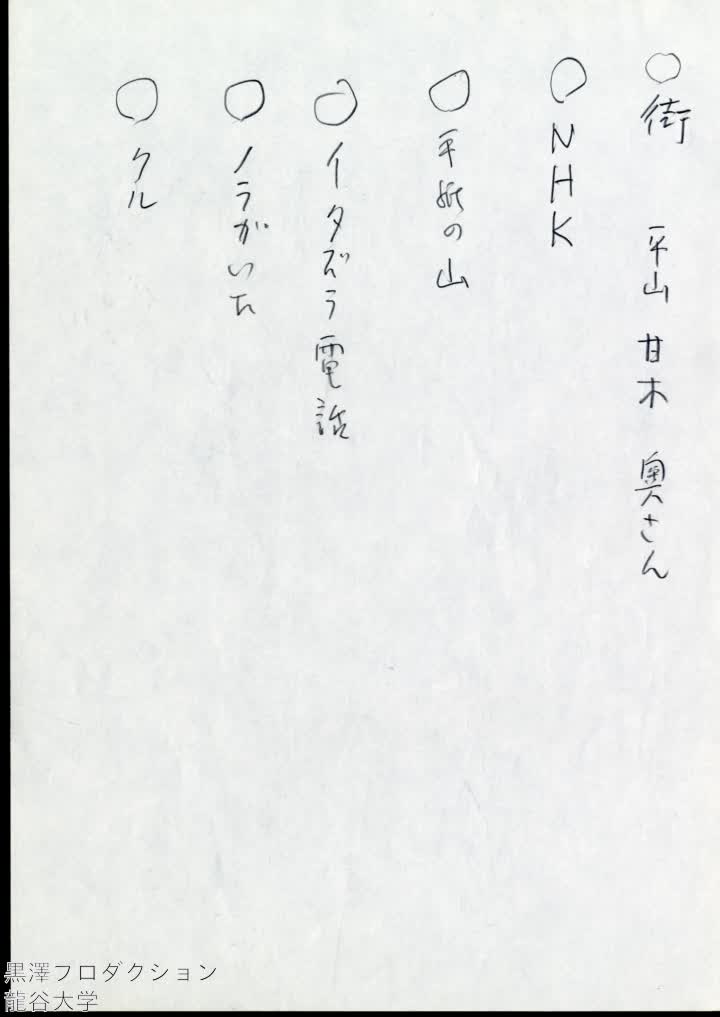 ○街　平山　甘木　奥さん
○NHK
○手紙の山
○イタズラ電話
○ノラがいた
○クル
黒澤プロダクション
龍谷大学